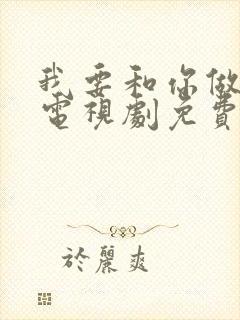 我要和你做
電視劇免費
於麗爽